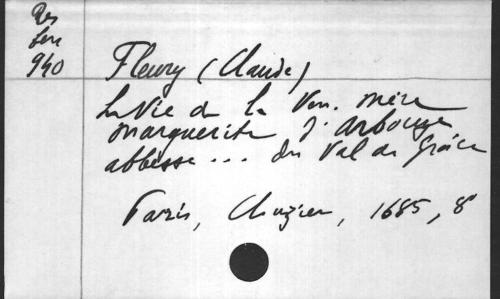 Res
940
Fleury (Claude)
La Vie de la Ven. mère
Marguerite d'Arbouze
abbesse ... du Val de Grâce
Paris, Cluzier, 1685, 8°